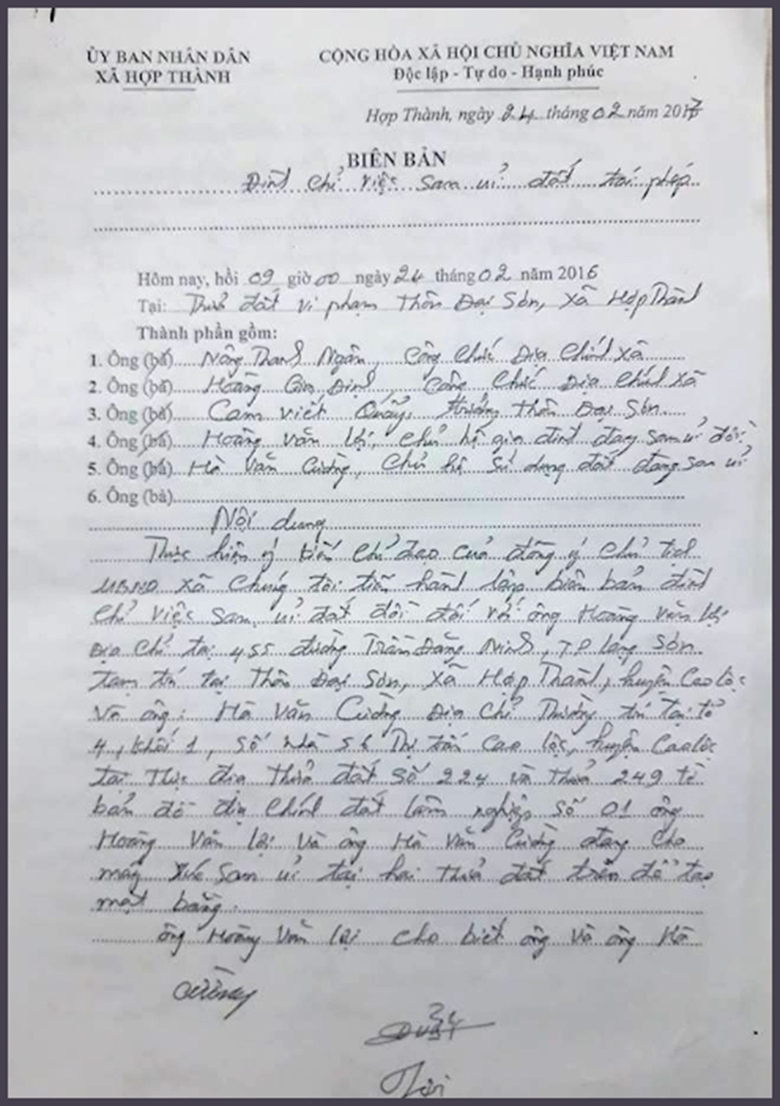 ỦY BAN NHÂN DÂN
XÃ HỢP THÀNH
CỘNG HÒA XÃ HỘI CHỦ NGHĨA VIỆT NAM
Độc lập - Tự do - Hạnh phúc
Hợp Thành, ngày 24 tháng 02 năm 2017
BIÊN BẢN
Đình chỉ việc san ủi đất trái phép
Hôm nay, hồi 09 giờ 00 ngày 24 tháng 02 năm 2016
Tại: Thửa đất vi phạm Thôn Đại Sơn, xã Hợp Thành
Thành phần gồm:
1. Ông (bà) Nông Thanh Ngân, Công chức Địa chính xã
2. Ông (bà) Hoàng Gia Định, Công chức Địa chính xã
3. Ông (bà) Cam Viết Quẩy, trưởng thôn Đại Sơn
4. Ông (bà) Hoàng Văn Lợi, chủ hộ gia đình đang san ủi đồi
5. Ông (bà) Hà Văn Cường, chủ hộ sử dụng đất đang san ủi
6. Ông (bà)
Nội dung
Thực hiện ý kiến chỉ đạo của đồng ý chủ tịch
UBND xã Chúng tôi tiến hành lập biên bản đình
chỉ việc san ủi đất đồi đối với ông Hoàng Văn Lợi
Địa chỉ tại 455 đường Trần Đăng Ninh, T.P Lạng Sơn
tạm trú tại Thôn Đại Sơn, xã Hợp Thành, huyện Cao Lộc
Và ông: Hà Văn Cường Địa chỉ Thường trú tại tổ
4, khối 1, số nhà 56 Thị trấn Cao Lộc, huyện Cao Lộc
tại thực địa thửa đất số 224 và thửa 249 tờ
bản đồ địa chính đất lâm nghiệp số 01 ông
Hoàng Văn Lợi và ông Hà Văn Cường đang cho
máy xúc san ủi tại hai thửa đất trên để tạo
mặt bằng.
Ông Hoàng Văn Lợi cho biết ông và ông Hà
Cường
Lợi